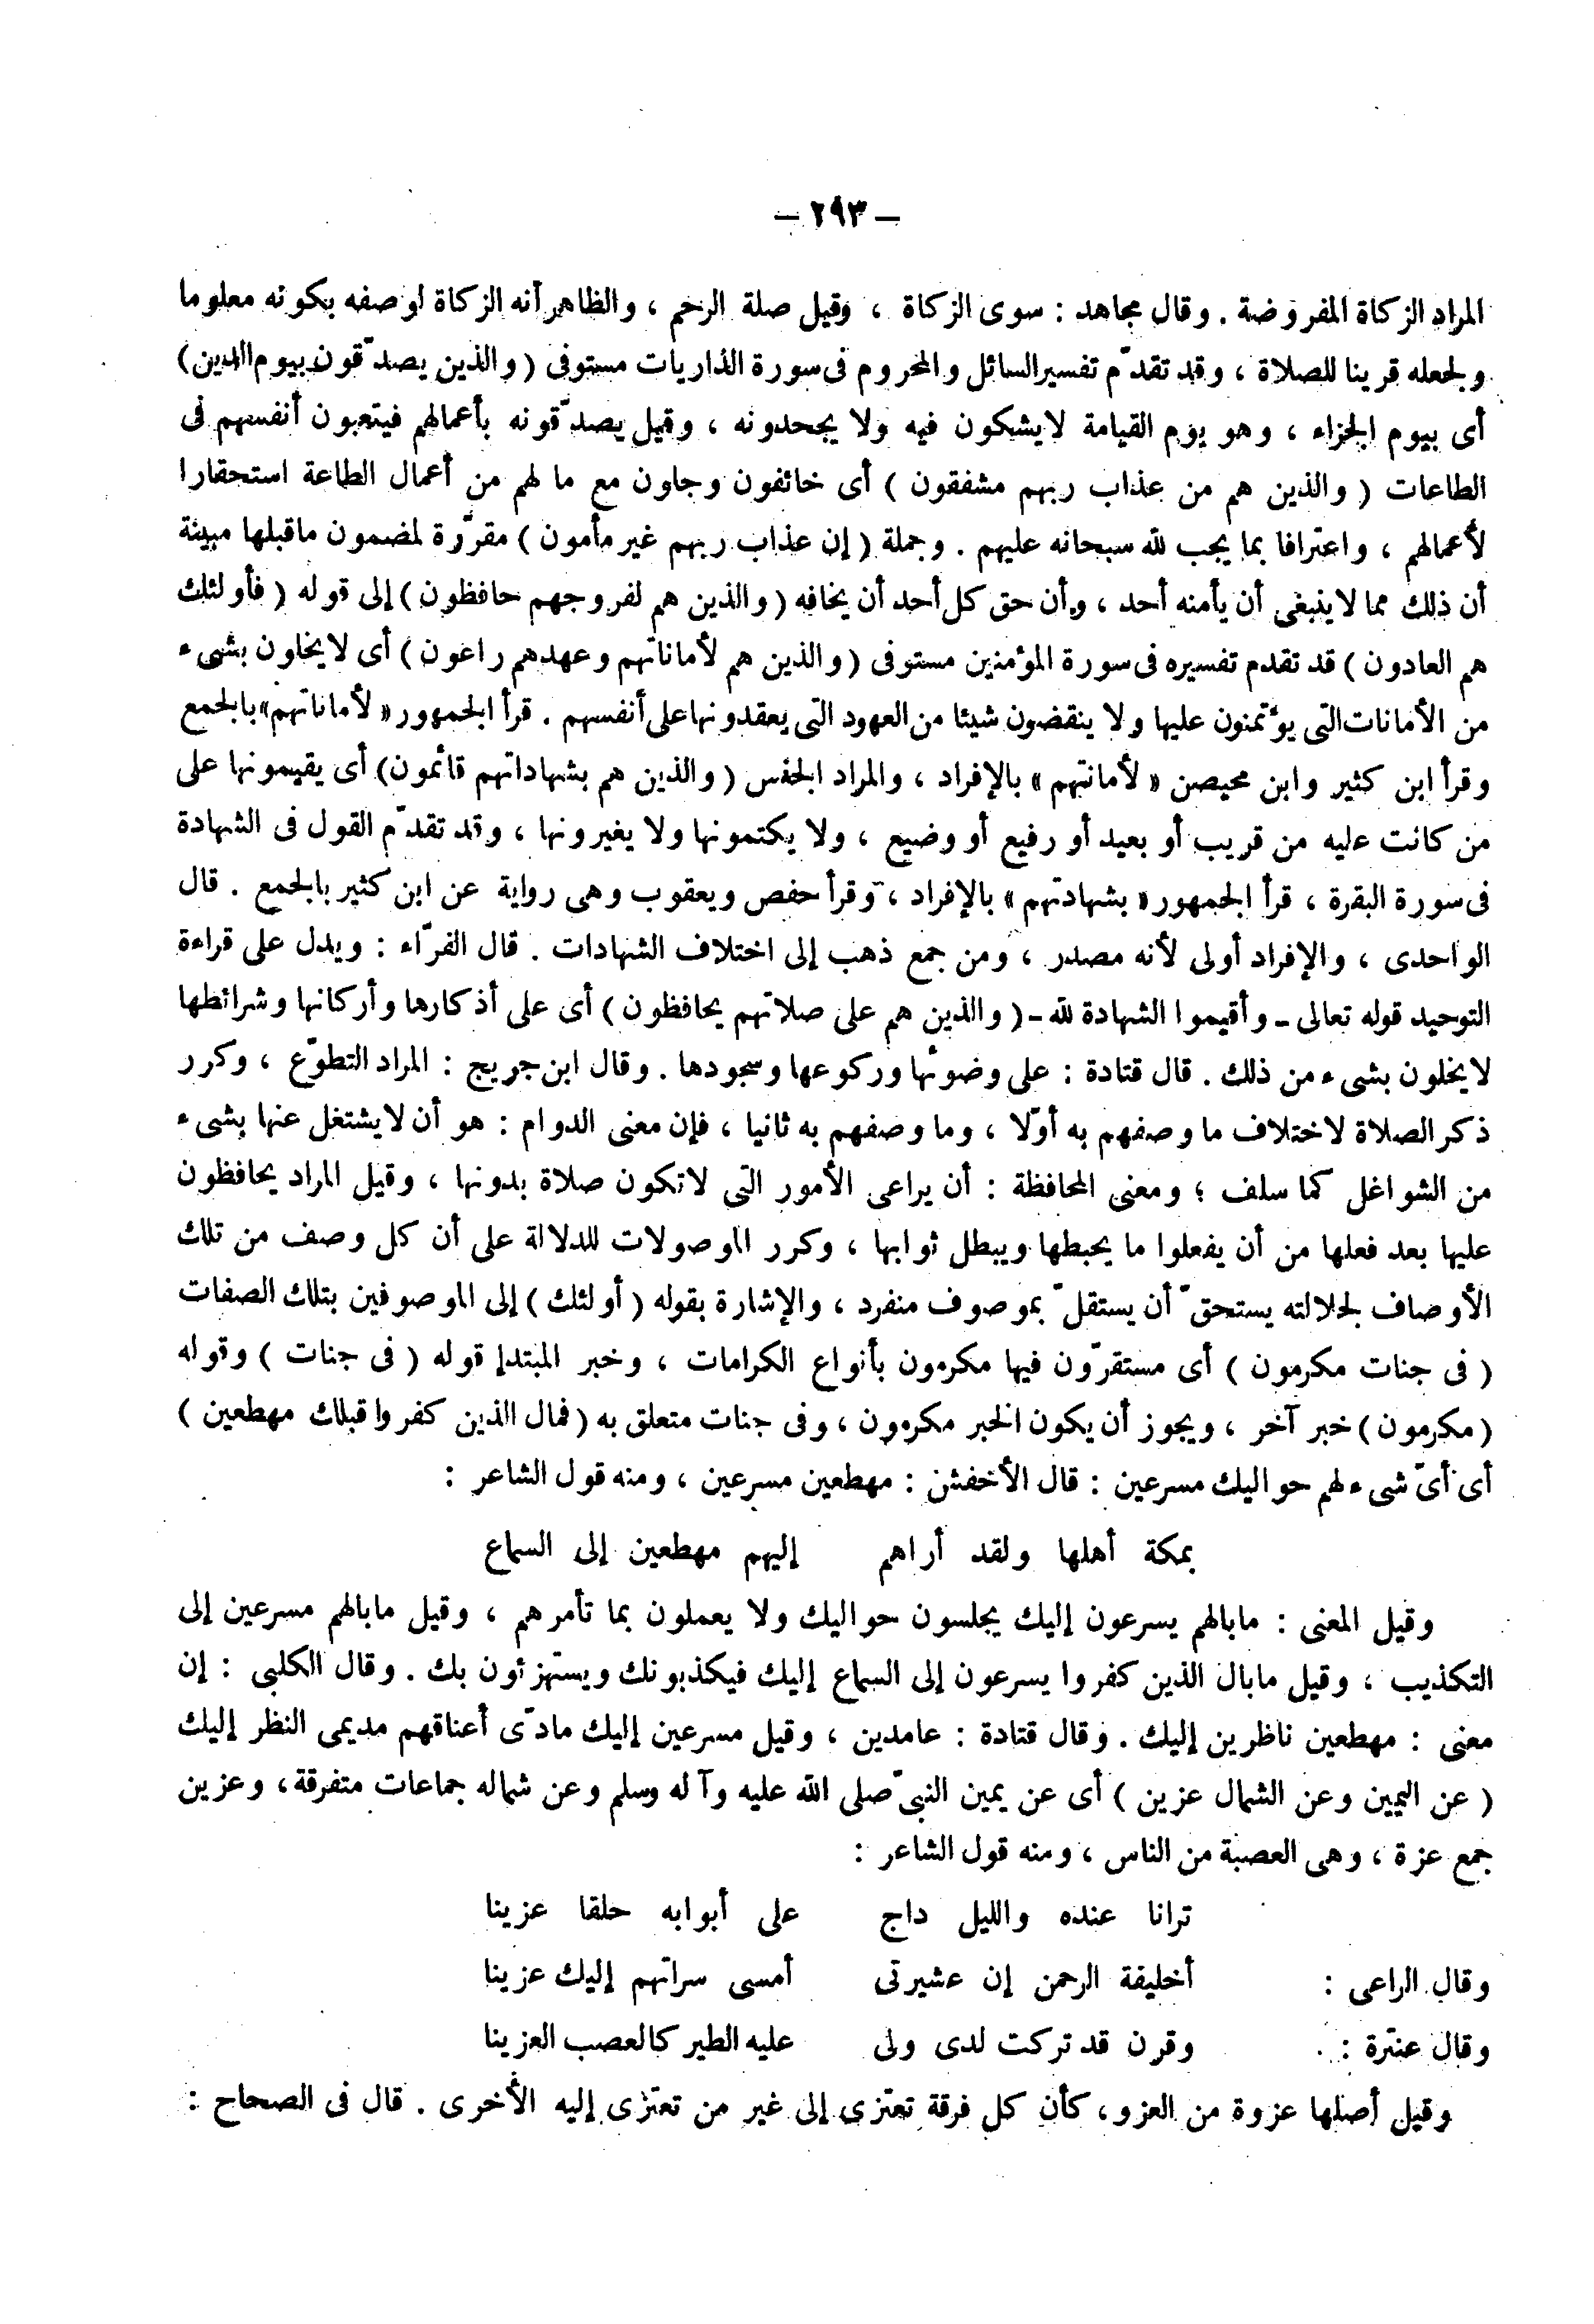 — ٢٩٣ —
المراد الزكاة المفروضة . وقال مجاهد : سوى الزكاة ، وقيل صلة الرحم ، والظاهر أنه الزكاة لوصفه بكونه معلوما
ولجعله قرينا للصلاة ، وقد تقدّم تفسير السائل والمحروم فى سورة الذاريات مستوفى ( والذين يصدّقون بيوم الدين)
أى بيوم الجزاء ، وهو يوم القيامة لايشكون فيه ولا يجحدونه ، وقيل يصدّقونه بأعمالهم فيتعبون أنفسهم فى
الطاعات ( والذين هم من عذاب ربهم مشفقون ) أى خائفون وجلون مع ما لهم من أعمال الطاعة استحقارا
لأعمالهم ، واعترافا بما يجب لله سبحانه عليهم . وجملة ( إن عذاب ربهم غير مأمون ) مقرّرة لمضمون ماقبلها مبينة
أن ذلك مما لاينبغى أن يأمنه أحد ، وأن حق كل أحد أن يخافه ( والذين هم لفروجهم حافظون ) إلى قوله ( فأولئك
هم العادون ) قد تقدم تفسيره فى سورة المؤمنين مستوفى ( والذين هم لأماناتهم وعهدهم راعون ) أى لايخلون بشىء
من الأمانات التى يؤتمنون عليها ولا ينقضون شيئا من العهود التى يعقدونها على أنفسهم . قرأ الجمهور « لأماناتهم » بالجمع
وقرأ ابن كثير وابن محيصن « لأمانتهم » بالإفراد ، والمراد الجنس ( والذين هم بشهاداتهم قائمون) أى يقيمونها على
من كانت عليه من قريب أو بعيد أو رفيع أو وضيع ، ولا يكتمونها ولا يغيرونها ، وقد تقدّم القول فى الشهادة
فى سورة البقرة ، قرأ الجمهور « بشهادتهم » بالإفراد ، وقرأ حفص ويعقوب وهى رواية عن ابن كثير بالجمع . قال
الواحدى ، والإفراد أولى لأنه مصدر ، ومن جمع ذهب إلى اختلاف الشهادات . قال الفرّاء : ويدل على قراءة
التوحيد قوله تعالى ـ وأقيموا الشهادة لله ـ ( والذين هم على صلاتهم يحافظون ) أى على أذكارها وأركانها وشرائطها
لايخلون بشىء من ذلك . قال قتادة : على وضوئها وركوعها وسجودها . وقال ابن جريج : المراد التطوّع ، وكرر
ذكر الصلاة لاختلاف ما وصفهم به أوّلا ، وما وصفهم به ثانيا ، فإن معنى الدوام : هو أن لايشتغل عنها بشىء
من الشواغل كما سلف ؛ ومعنى المحافظة : أن يراعى الأمور التى لاتكون صلاة بدونها ، وقيل المراد يحافظون
عليها بعد فعلها من أن يفعلوا ما يحبطها ويبطل ثوابها ، وكرر الموصولات للدلالة على أن كل وصف من تلك
الأوصاف لجلالته يستحقّ أن يستقلّ بموصوف منفرد ، والإشارة بقوله ( أولئك ) إلى الموصوفين بتلك الصفات
( فى جنات مكرمون ) أى مستقرّون فيها مكرمون بأنواع الكرامات ، وخبر المبتدإ قوله ( فى جنات ) وقوله
( مكرمون ) خبر آخر ، ويجوز أن يكون الخبر مكرمون ، وفى جنات متعلق به ( فمال الذين كفروا قبلك مهطعين )
أى أىّ شىء لهم حواليك مسرعين : قال الأخفش : مهطعين مسرعين ، ومنه قول الشاعر :
بمكة أهلها ولقد أراهم إليهم مهطعين إلى السماع
وقيل المعنى : مابالهم يسرعون إليك يجلسون حواليك ولا يعملون بما تأمرهم ، وقيل مابالهم مسرعين إلى
التكذيب ، وقيل مابال الذين كفروا يسرعون إلى السماع إليك فيكذبونك ويستهزئون بك . وقال الكلبى : إن
معنى : مهطعين ناظرين إليك . وقال قتادة : عامدين ، وقيل مسرعين إليك مادّى أعناقهم مديمى النظر إليك
( عن اليمين وعن الشمال عزين ) أى عن يمين النبىّ صلى الله عليه وآله وسلم وعن شماله جماعات متفرقة ، وعزين
جمع عزة ، وهى العصبة من الناس ، ومنه قول الشاعر :
ترانا عنده والليل داج على أبوابه حلقا عزينا
وقال الراعى : أخليفة الرحمن إن عشيرتى أمسى سراتهم إليك عزينا
وقال عنترة : وقرن قد تركت لدى ولى عليه الطير كالعصب العزينا
وقيل أصلها عزوة من العزو ، كأن كل فرقة تعتزى إلى غير من تعتزى إليه الأخرى . قال فى الصحاح :